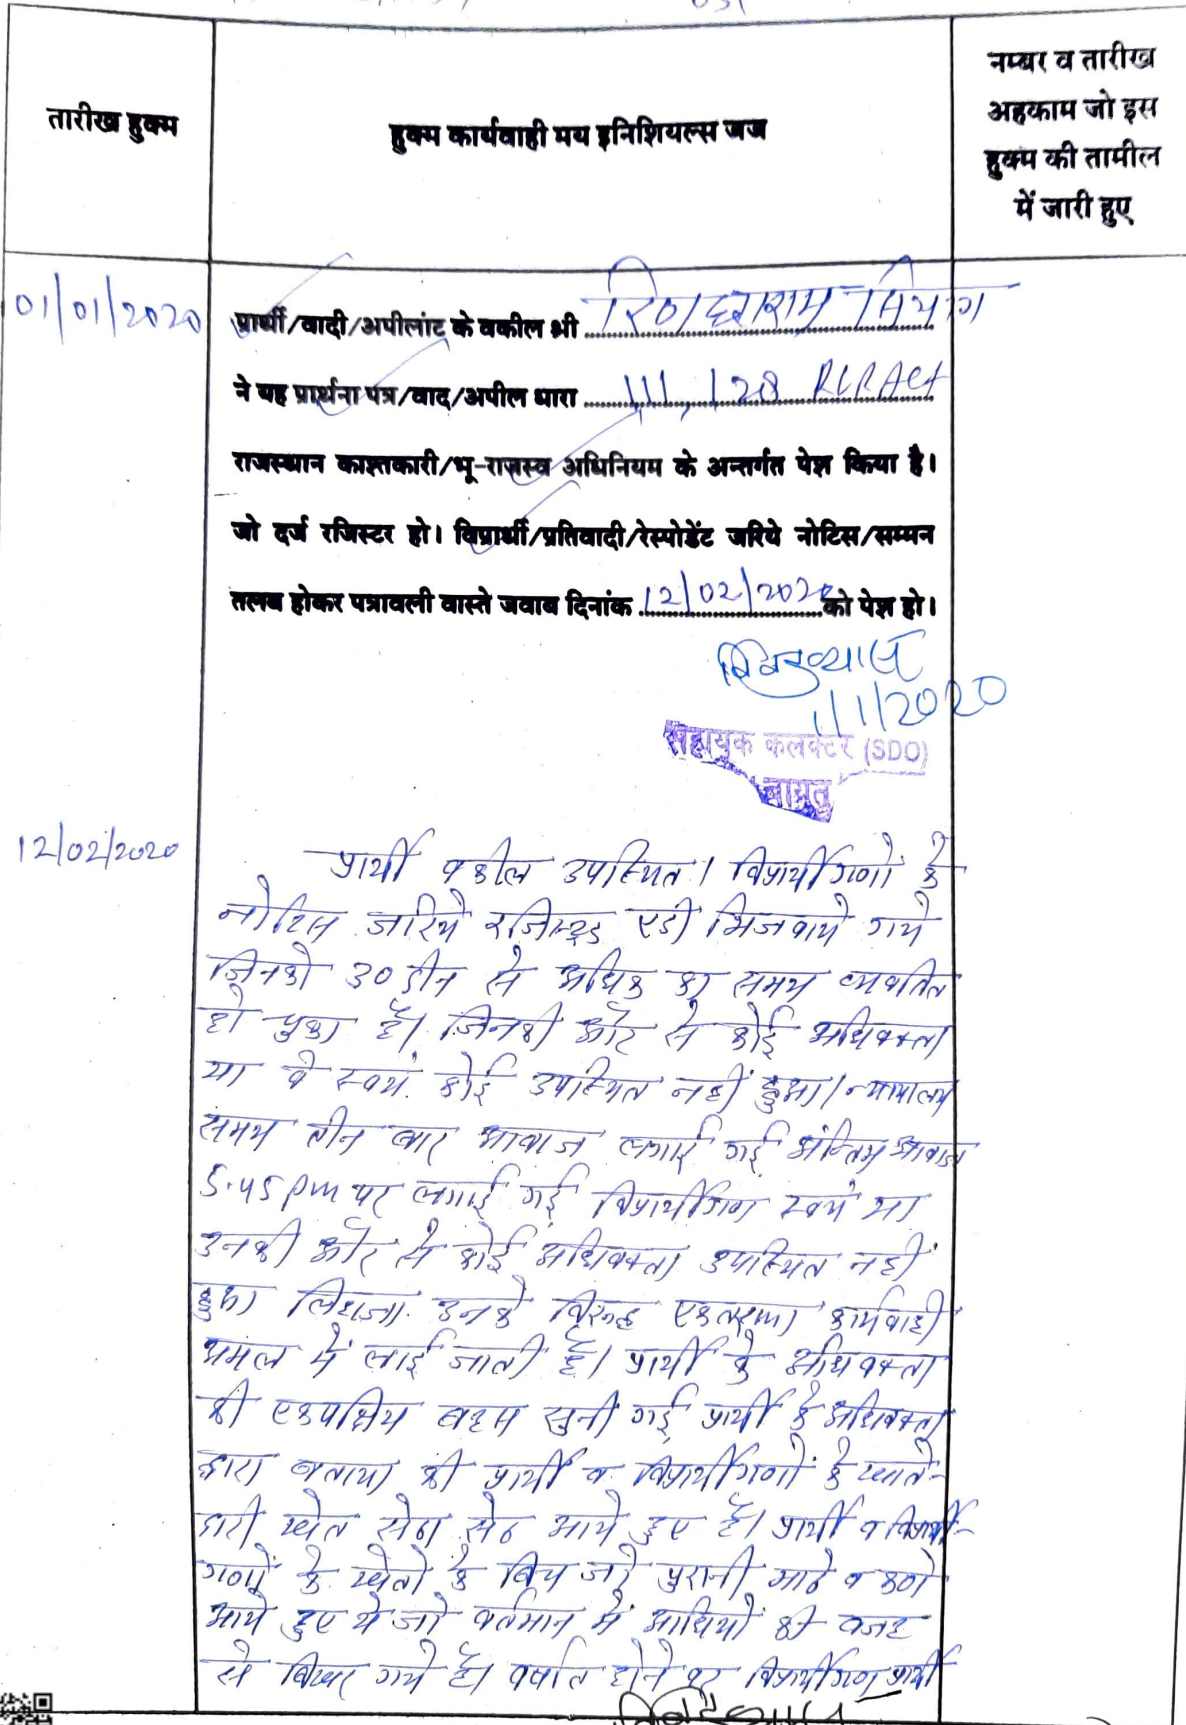 तारीख हुक्म
हुक्म कार्यवाही मय इनिशियल्स जज
नम्बर व तारीख
अहकाम जो इस
हुक्म की तामील
में जारी हुए
01/01/2020
प्रार्थी/वादी/अपीलांट के वकील श्री सियाग
ने यह प्रार्थना पत्र/वाद/अपील धारा 111, 128 RLR Act
राजस्थान काश्तकारी/भू-राजस्व अधिनियम के अन्तर्गत पेश किया है।
जो दर्ज रजिस्टर हो। विप्रार्थी/प्रतिवादी/रेस्पोडेंट जरिये नोटिस/सम्मन
तलब होकर पत्रावली वास्ते जवाब दिनांक 12/02/2020 को पेश हो।
1/1/2020
सहायक कलक्टर (SDO)
बायतु
12/02/2020
प्रार्थी वकील उपस्थित। विप्रार्थीगणों के
नोटिस जरिये रजिस्टर्ड एडी भिजवाये गये
जिनको 30 दीन से अधिक का समय व्यतित
हो चुका है। जिनकी और से कोई अधिवक्ता
या वे स्वयं कोई उपस्थित नहीं हुआ। न्यायालय
समय तीन बार आवाज लगाई गई अन्तिम आवाज
5.45 pm पर लगाई गई विप्रार्थीगण स्वयं या
उनकी और से कोई अधिवक्ता उपस्थित नहीं
हुआ लिहाजा उनके विरुद्ध एकतरफा कार्यवाही
अमल में लाई जाती है। प्रार्थी के अधिवक्ता
की एकपक्षिय बहस सुनी गई प्रार्थी के अधिवक्ता
द्वारा बताया की प्रार्थी व विप्रार्थीगणों के खाते-
दारी खेत सेढा सेढ आये हुए है। प्रार्थी व विप्रार्थी-
गणों के खेतो के बिच जो पुरानी माठे व कणे
आये हुए थे जो वर्तमान में आंधियों की वजह
से बिखर गये है। वर्षात होने पर विप्रार्थीगण प्रार्थी